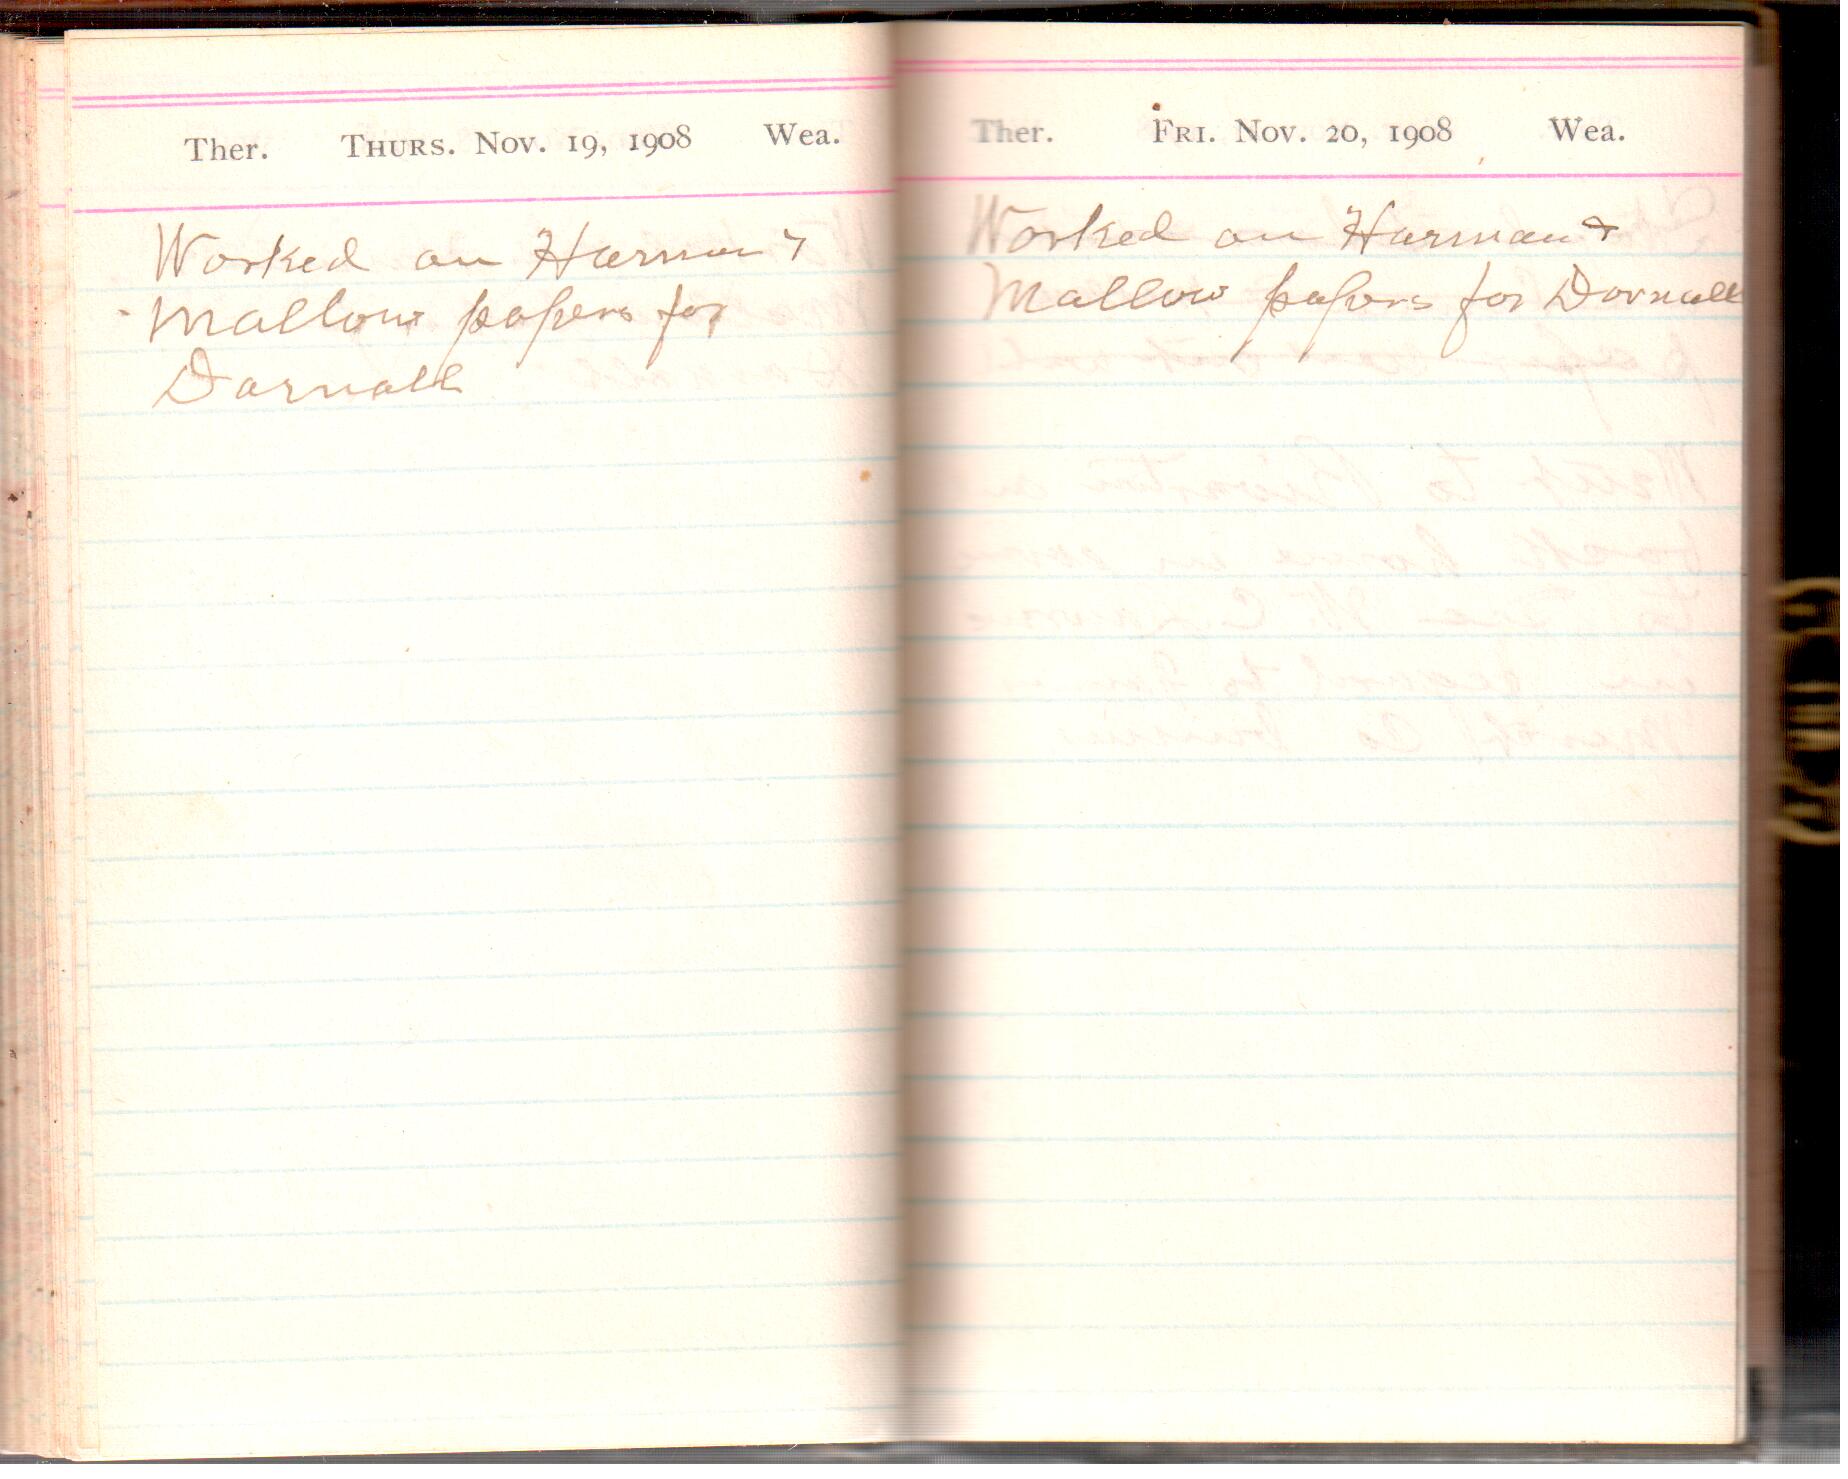 Ther. THURS. NOV. 19, 1908 Wea.
Worked on Harman &
Mallow papers for
Darnall
Ther. FRI. NOV. 20, 1908 Wea.
Worked on Harman &
Mallow papers for Darnall